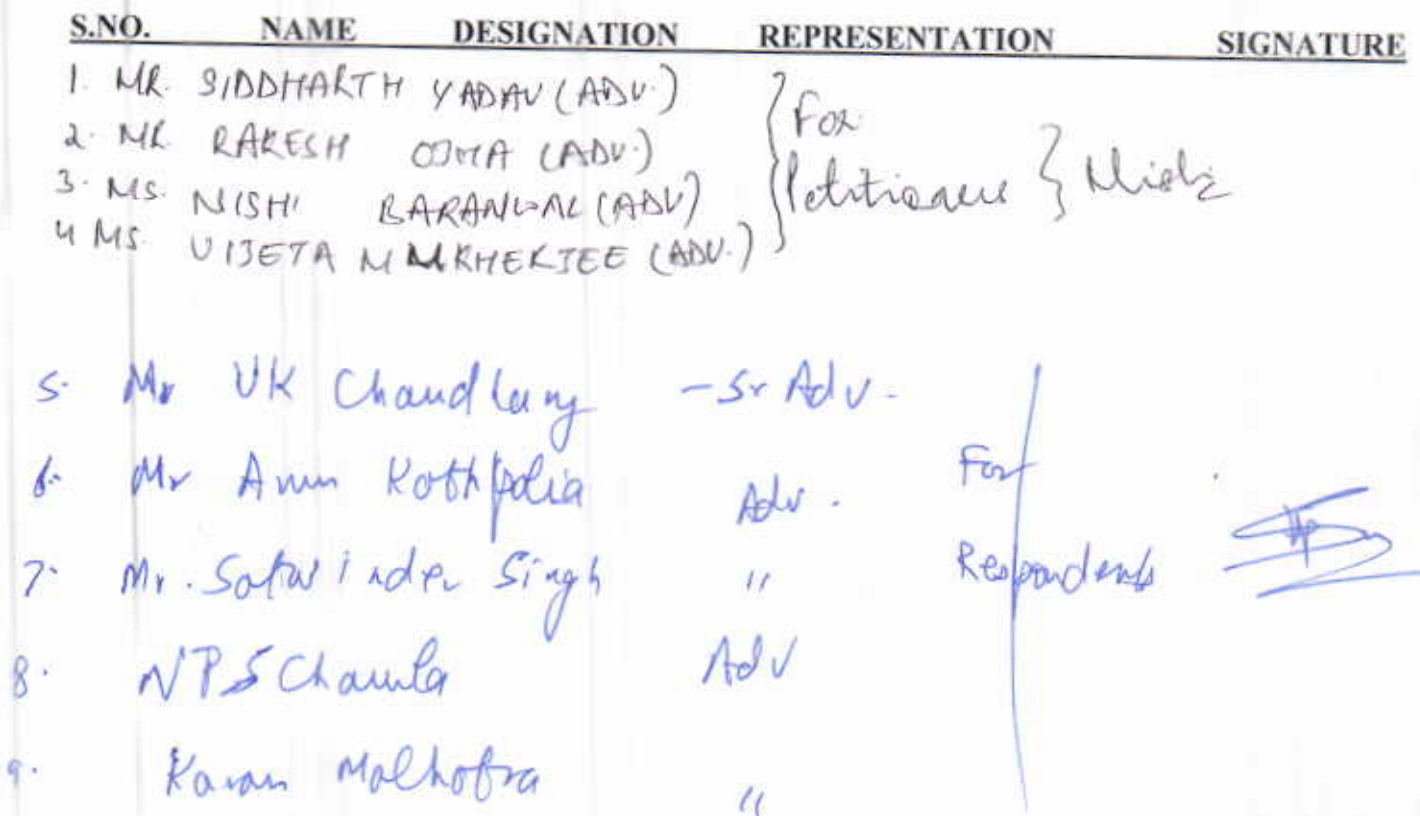 S.NO. NAME DESIGNATION REPRESENTATION SIGNATURE
1. MR. SIDDHARTH YADAV (ADV.)
2. MR. RAKESH OJHA (ADV.)
3. MS. NISHI BARANWAL (ADV)
4 MS. VIJETA MUKHERJEE (ADV.)
For
Petitioners
5. Mr UK Chaudhary - Sr Adv.
6. Mr Arun Kathpalia Adv.
7. Mr. Satwinder Singh "
For
Respondents
8. NPS Chawla Adv
9. Karan Malhotra "